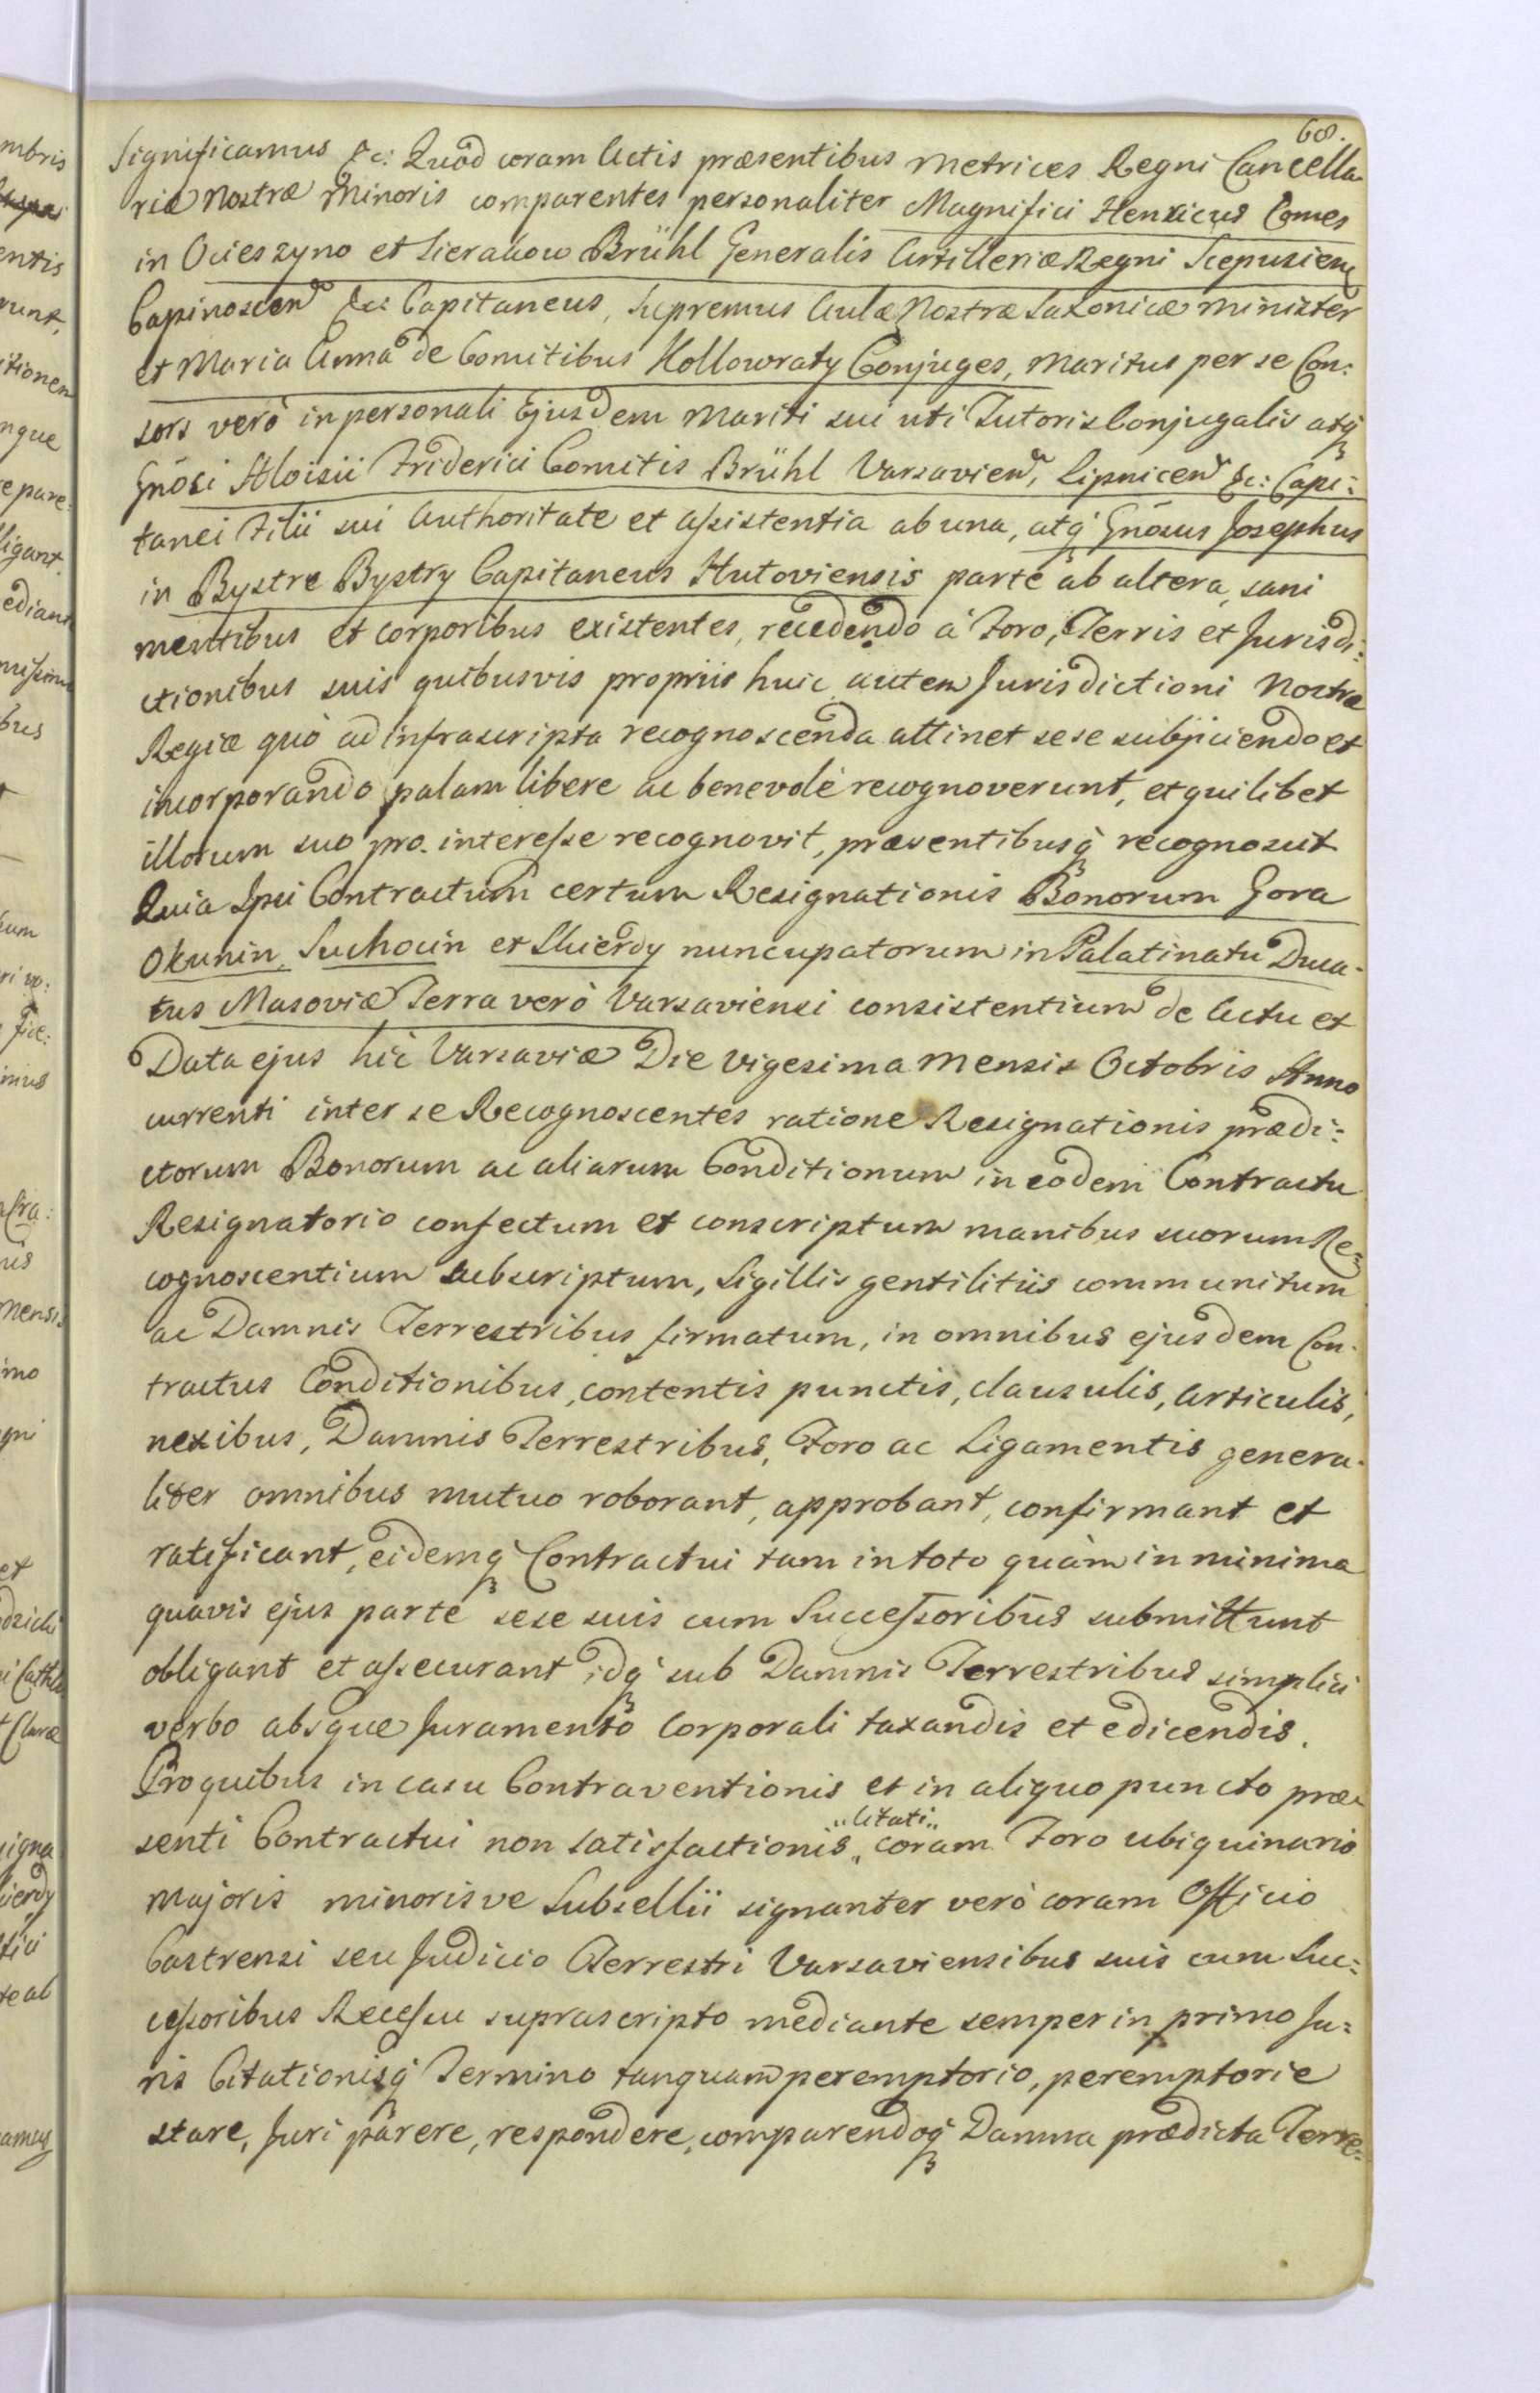 68.
Significamus &c: Quod coram Actis præsentibus Metrices Regni Cancella-
riæ Nostræ Minoris comparentes personaliter Magnifici Henricus Comes
in Ocieszyno et Sierakow Brühl Generalis Artilleriæ Regni Scepusien
Capinoscen &c: Capitaneus, Supremus Aulæ Nostræ Saxonicæ Minister
et Maria Anna de Comitibus Kollowraty Conjuges, Maritus per se Con:
sors verò in personali Ejusdem Mariti sui uti Tutoris Conjugalis atq
Gnosi Aloisii Friderici Comitis Brühl Varsavien, Lipnicen &c: Capi:
tanei Filii sui Authoritate et assistentia ab una, atq Gnosus Josephus
in Bystre Bystry Capitaneus Hutoviensis parte ab altera, sani
mentibus et corporibus existentes, recedendo à Foro, Terris et Jurisdi:
ctionibus suis quibusvis propriis huic autem Jurisdictioni Nostræ
Regiæ quò ad infrascripta recognoscenda attinet sese subjiciendo et
incorporando palam libere ac benevolè recognoverunt, et quilibet
illorum suo pro interesse recognovit, præsentibusq recognoscit
Quia Ipsi Contractum certum Resignationis Bonorum Gora
Okunin, Suchocin et Skierdy nuncupatorum in Palatinatu Duca-
tus Masoviæ Terra verò Varsaviensi consistentium de Actu et
Data ejus hic Varsaviæ Die vigesima Mensis Octobris Anno
currenti inter se Recognoscentes ratione Resignationis prædi:
ctorum Bonorum ac aliarum Conditionum in eodem Contractu
Resignatorio confectum et conscriptum manibus suorum Re-
cognoscentium subscriptum, Sigillis gentilitiis communitum
ac Damnis Terrestribus firmatum, in omnibus ejusdem Con-
tractus Conditionibus, contentis punctis, clausulis, articulis,
nexibus, Damnis Terrestribus, Foro ac Ligamentis genera-
liter omnibus mutuo roborant, approbant, confirmant et
ratificant, eidemq Contractui tam in toto quàm in minima
quavis ejus parte sese suis cum Successoribus submittunt
obligant et assecurant idq sub Damnis Terrestribus simplici
verbo absque Juramento Corporali taxandis et edicendis.
Pro quibus in casu Contraventionis et in aliquo puncto præ
senti Contractui non satisfactionis „citati„ coram Foro ubiquinario
Majoris minorisve Subsellii signanter verò coram Officio
Castrensi seu Judicio Terrestri Varsaviensibus suis cum Suc:
cessoribus Recessu suprascripto mediante semper in primo Ju:
ris Citationisq Termino tanquam peremptorio, peremptorie
stare, Juri parere, respondere, comparendoq Damna prædicta Terre: